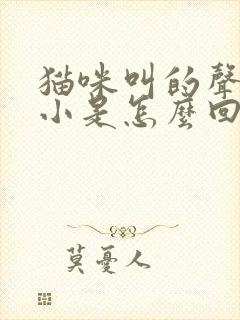 猫咪叫的聲
小是怎麼回
莫憂人